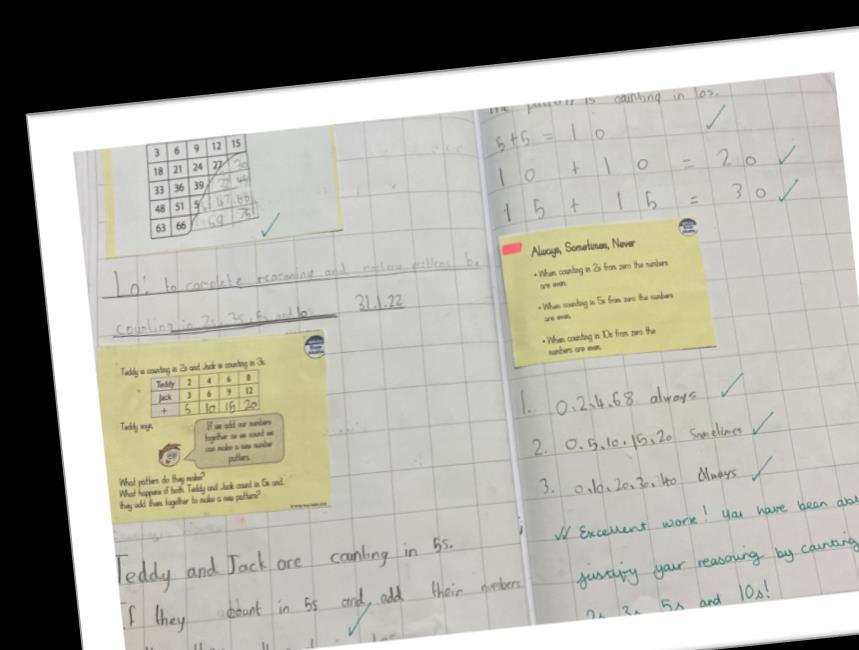 3 6 9 12 15
18 21 24 27 30
33 36 39
48 51
63 66
Lo: to complete reasoning and problems by
counting in 2s, 3s, 5s and 10s
31.1.22
Teddy is counting in 2s and Jack is counting in 3s.
Teddy 2 4 6 8
Jack 3 6 9 12
+ 5 10 15 20
Teddy says,
If we add our numbers
together as we count we
can make a new number
pattern.
What pattern do they make?
What happens if both Teddy and Jack count in 5s and
they add them together to make a new pattern?
Teddy and Jack are counting in 5s.
If they count in 5s and add their numbers
is counting in 10s.
5+5 = 10
10 + 10 = 20
15 + 15 = 30
Always, Sometimes, Never
• When counting in 2s from zero the numbers
are even.
• When counting in 5s from zero the numbers
are even.
• When counting in 10s from zero the
numbers are even.
1. 0.2.4.68 always
2. 0.5.10.15.20 Sometimes
3. 0.10.20.30.40 Always
Excellent work! You have been
justify your reasoning by counting
2s 3s 5s and 10s!